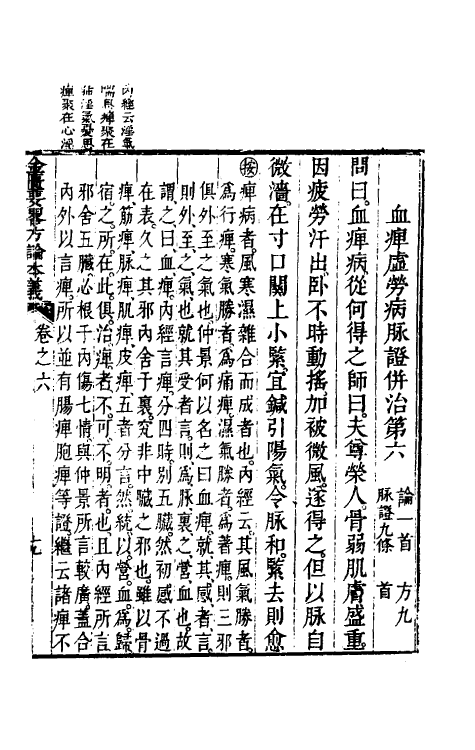 血痺虛勞病脉證併治第六 論一首 脉證九條 方九首
問曰。血痺病。從何得之。師曰。夫尊榮人。骨弱肌膚盛。重
因疲勞汗出。臥不時動搖。加被微風。遂得之。但以脉自
微濇。在寸口關上小緊。宜鍼引陽氣。令脉和。緊去則愈
按痺病者。風寒濕雜合而成者也。內經云。其風氣勝者。
爲行痺。寒氣勝者。爲痛痺。濕氣勝者。爲著痺。則三邪
俱外至之氣也。仲景何以名之曰血痺。就其感者言。
則外至之氣也。就其受者言。則爲脉裏之營血也。故
謂之曰血痺。內經言痺。分四時別五臟。然初感不過
在表。久之其邪內舍于裏。究非中臟之邪也。雖以骨
痺筋痺脉痺肌痺皮痺。五者分言。然統以營血爲歸
宿之所在。此俱治痺者。不可不明者也。且內經所言
邪舍五臟。必根于內傷七情。與仲景所言較廣。蓋合
內外以言痺。所以並有腸痺胞痺等證。繼云諸痺不
金匱要畧方論本義 卷之六
內經云淫氣
喘息痺聚在
肺淫氣憂思
痺聚在心淫